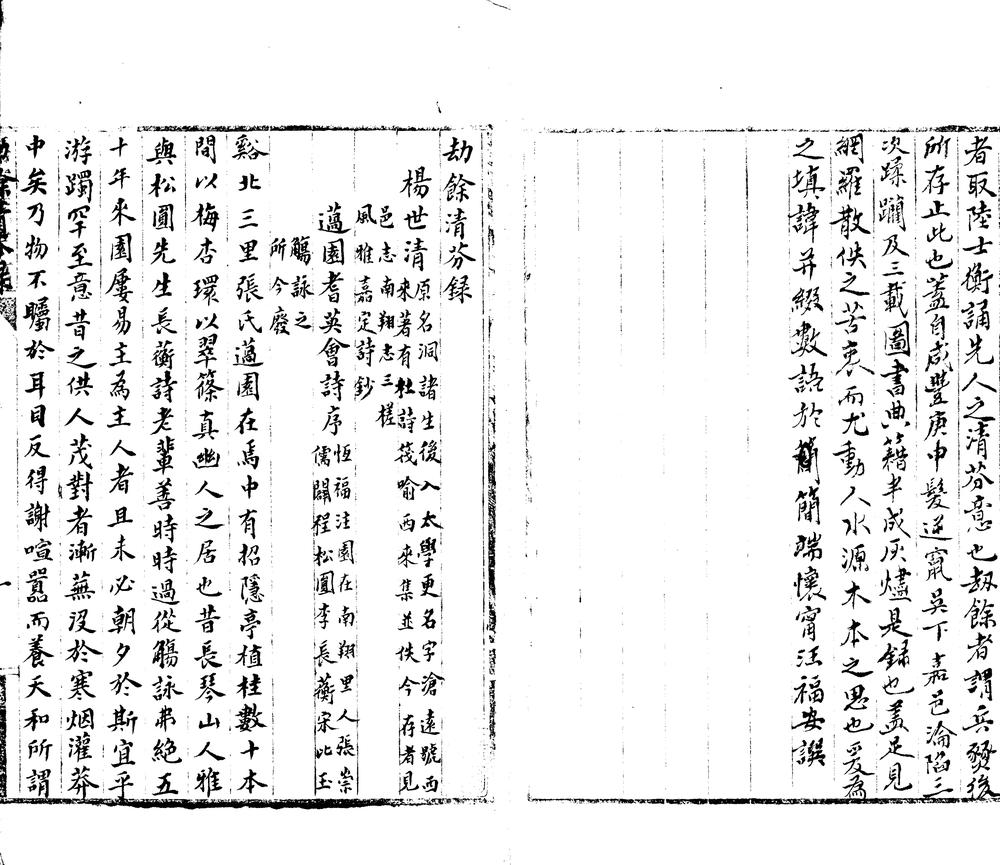 者取陸士衡誦先人之清芬意也劫餘者謂兵燹後
所存止此也蓋自咸豐庚申髮逆竄吳下嘉邑淪陷三
次蹂躪及三載圖書典籍半成灰燼是録也蓋足見
網羅散佚之苦衷而尤動人水源木本之思也爰為
之填諱并綴數語於簡端懷甯汪福安譔
劫餘清芬録
楊世清原名洞諸生後入太學更名字滄遠號西
來著有杜詩筏喻西來集並佚今存者見
邑志南翔志三槎
風雅嘉定詩鈔
薖園耆英會詩序恆福注園在南翔里人張崇
儒闢程松圓李長蘅宋比玉
觴詠之
所今廢
谿北三里張氏薖園在焉中有招隱亭植桂數十本
間以梅杏環以翠篠真幽人之居也昔長琴山人雅
與松圓先生長蘅詩老輩善時時過從觴詠弗絶五
十年來園屢易主為主人者且未必朝夕於斯宜乎
游躅罕至意昔之供人茂對者漸蕪沒於寒烟灌莽
中矣乃物不矚於耳目反得謝喧囂而養天和所謂
劫餘清芬録
一